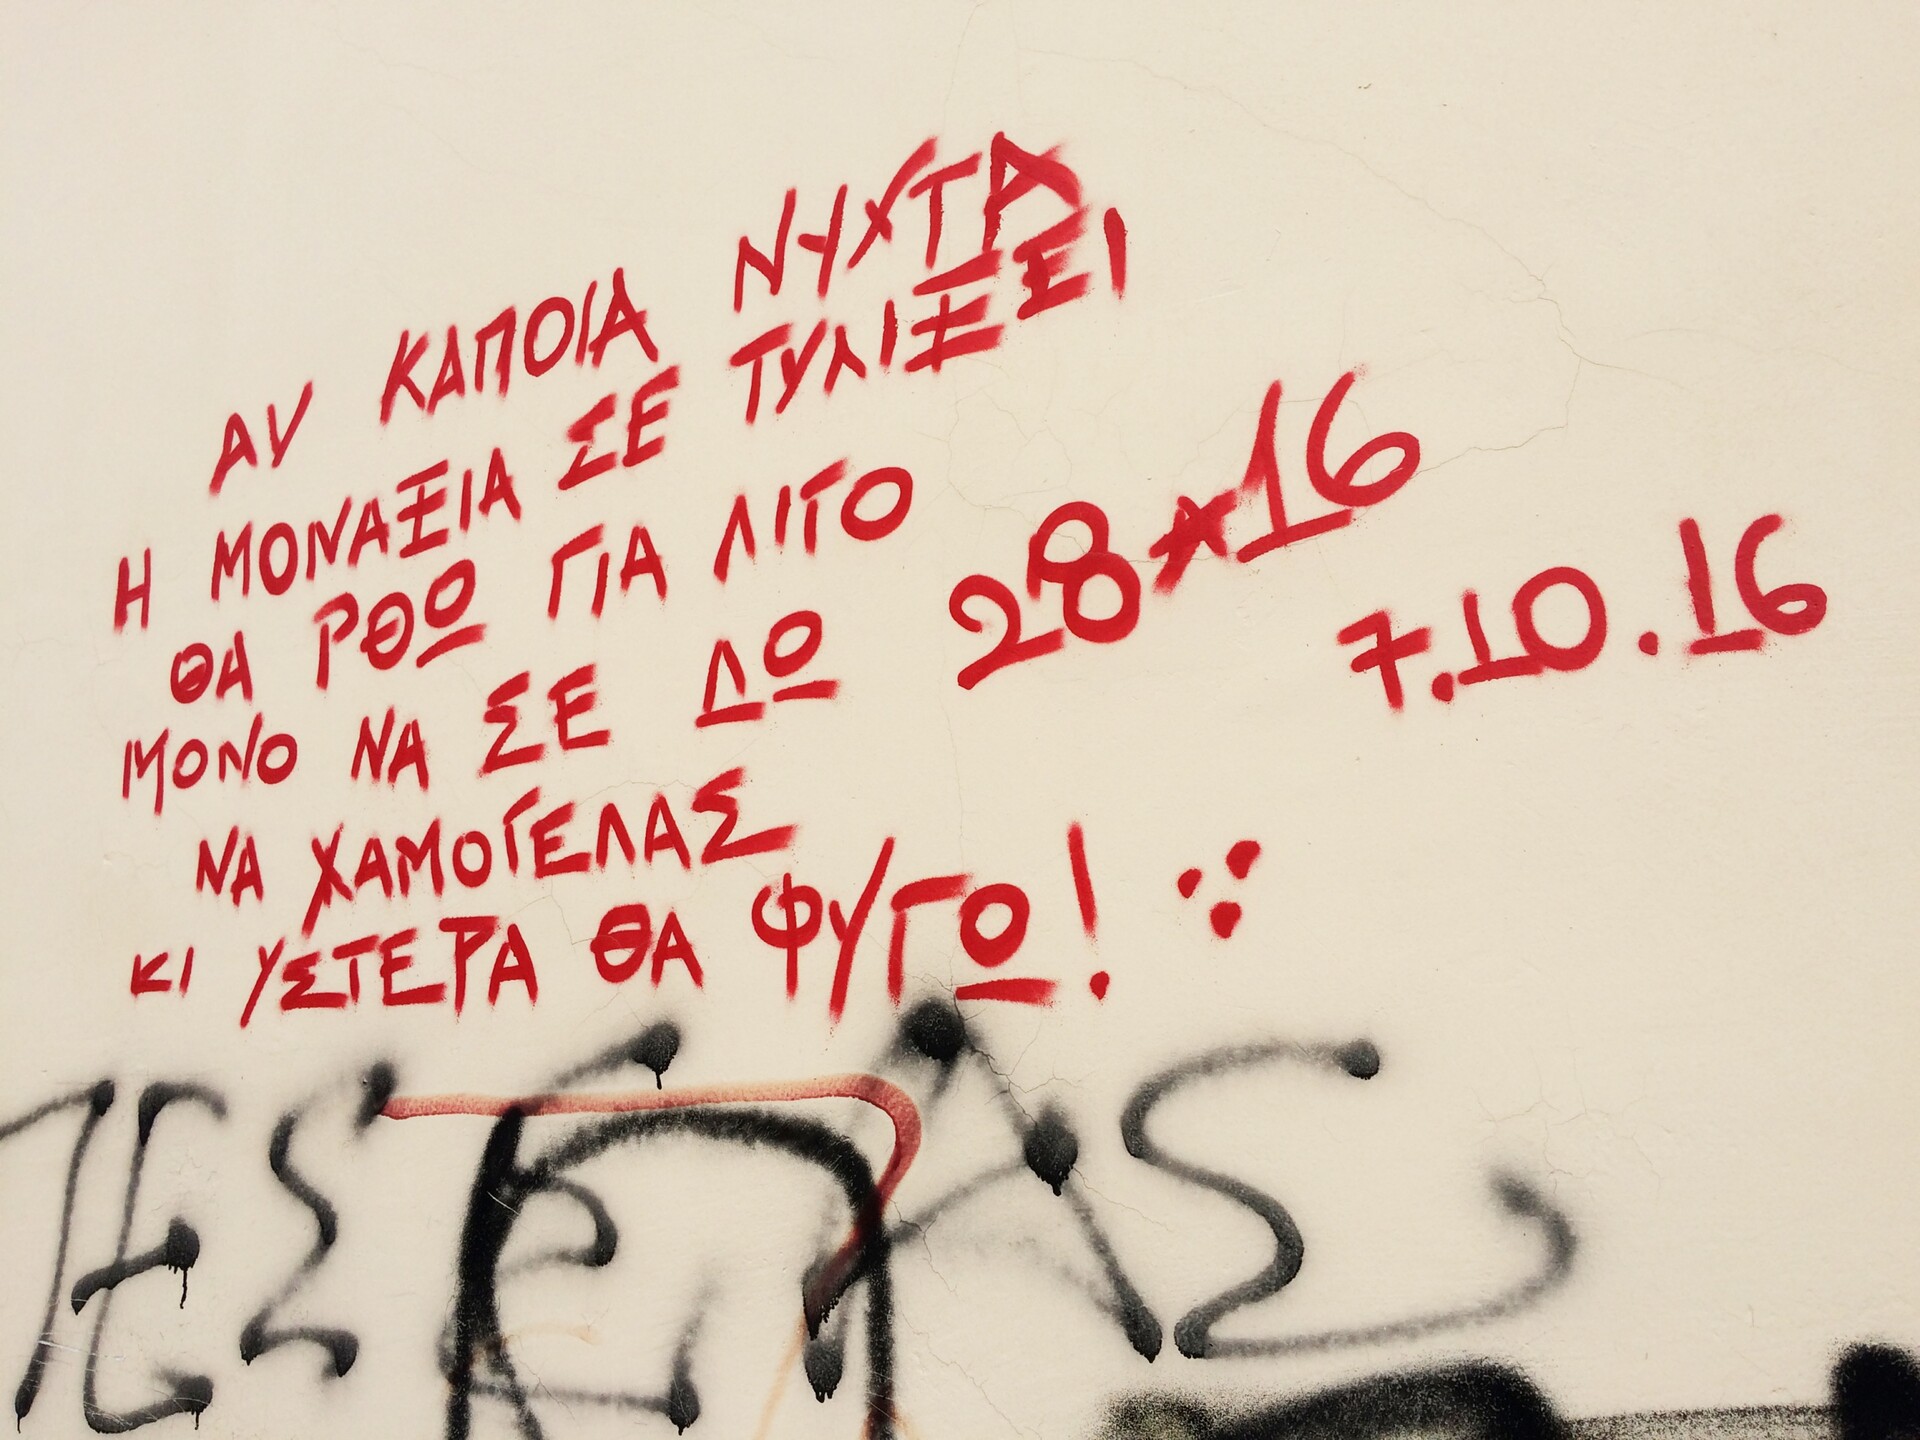 ΑΝ ΚΑΠΟΙΑ ΝΥΧΤΑ
Η ΜΟΝΑΞΙΑ ΣΕ ΤΥΛΙΞΕΙ
ΘΑ ΡΘΩ ΓΙΑ ΛΙΓΟ
ΜΟΝΟ ΝΑ ΣΕ ΔΩ
28*16
7.10.16
ΝΑ ΧΑΜΟΓΕΛΑΣ
ΚΙ ΥΣΤΕΡΑ ΘΑ ΦΥΓΩ!